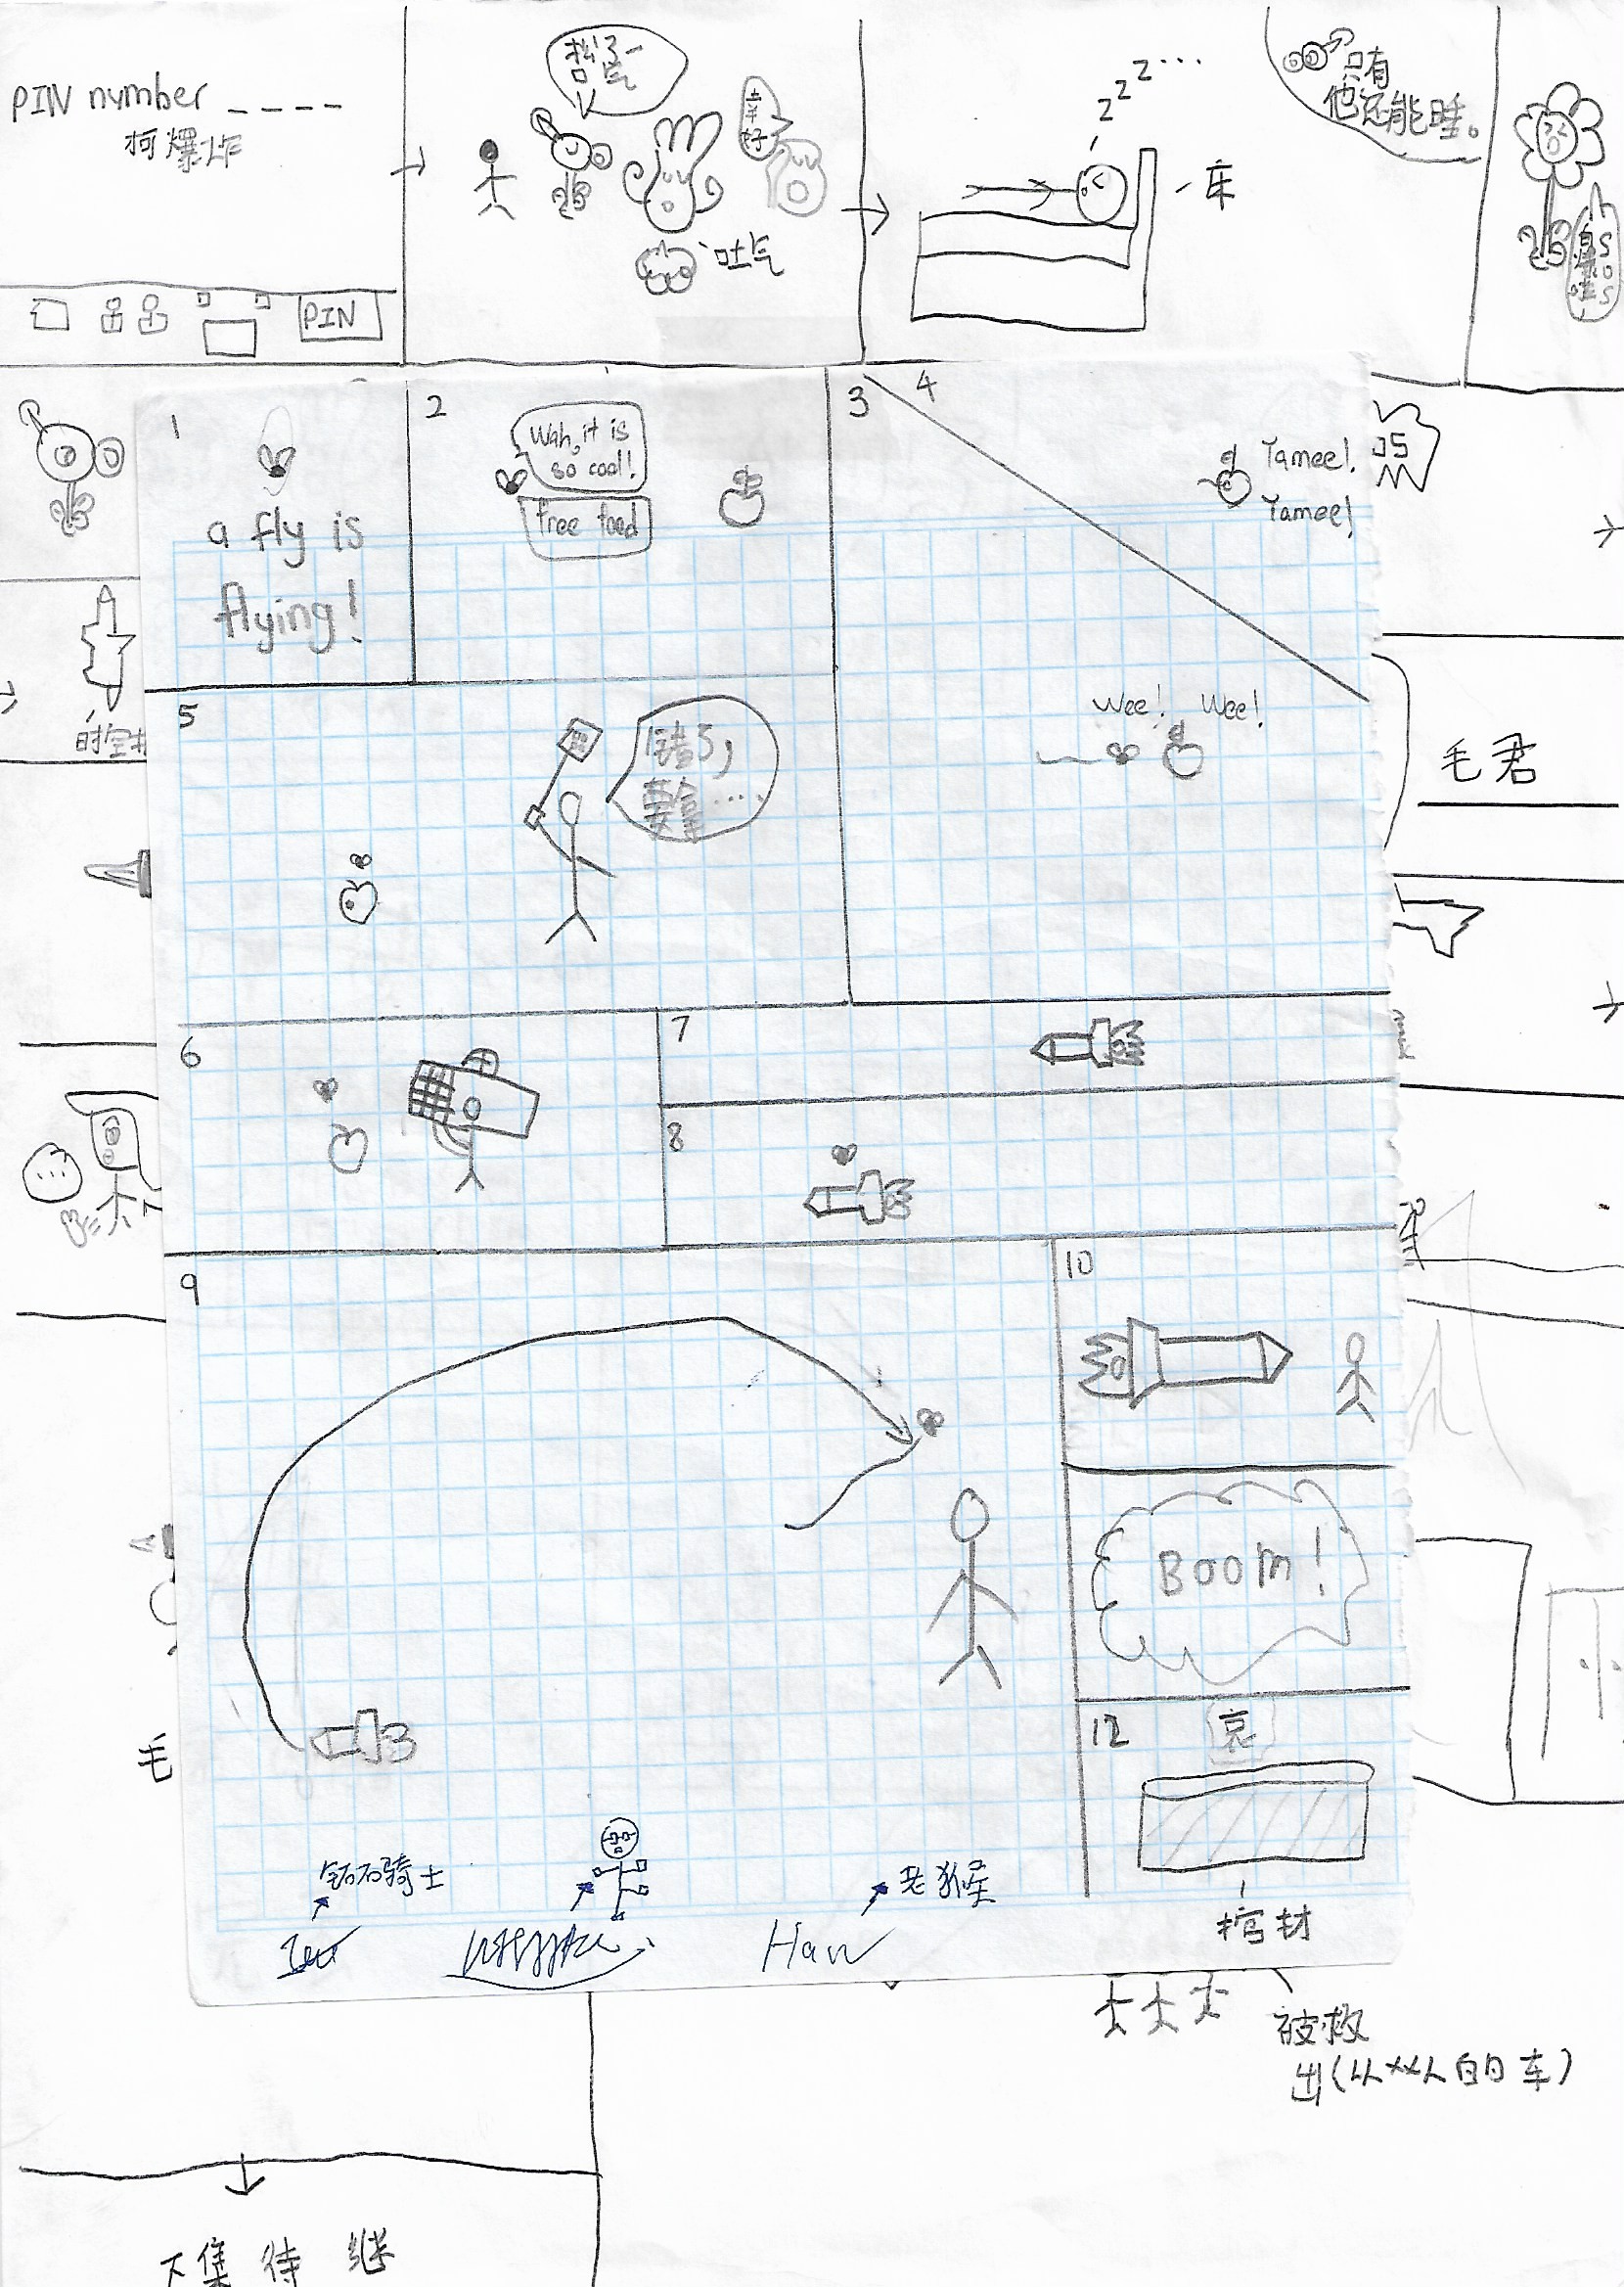 PIN number ----
柯爆炸
PIN
松了一
口气
幸
好
吐气
zzz...
床
只有
他还能睡。
SOS
1
a fly is
flying!
2
Wah, it is
so cool!
free food
3
4
Yamee!
Yamee!
Wee! Wee!
5
错了,
要拿....
6
7
8
9
10
BOOM!
12
哀
棺材
毛君
毛
钻石骑士
老猴
Haw
被救
出(从XX人的车)
下集待继